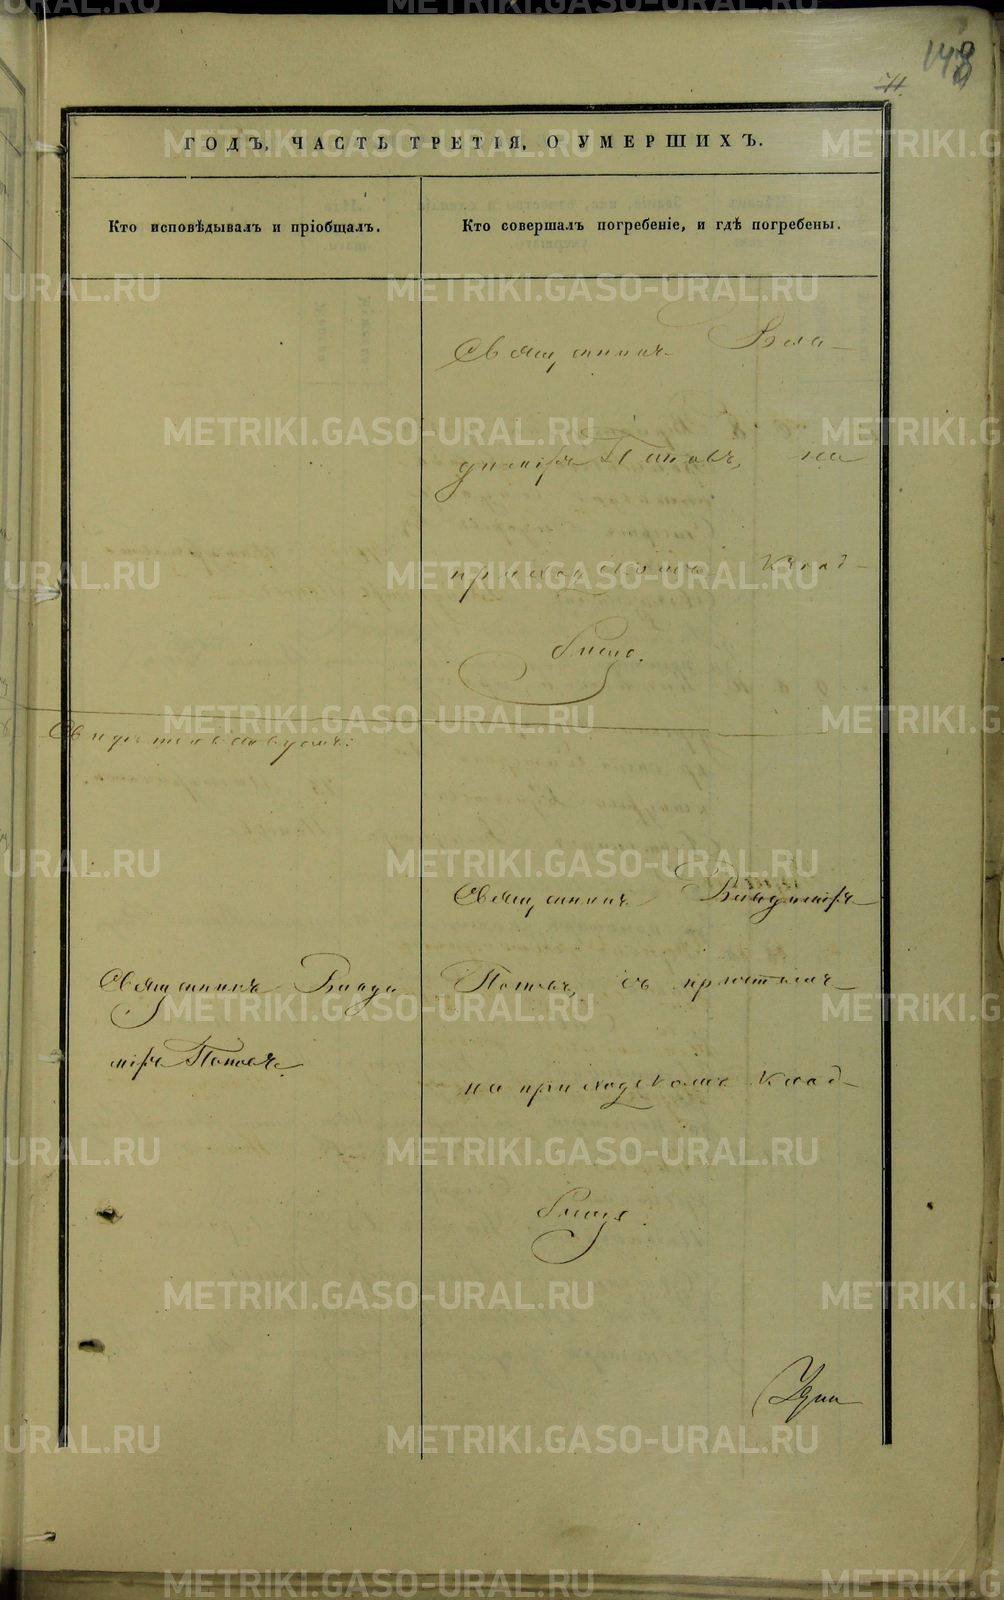 148
71.
ГОДЪ, ЧАСТЬ ТРЕТІЯ, О УМЕРШИХЪ.
Кто исповѣдывалъ и пріобщалъ.
Кто совершалъ погребеніе, и гдѣ погребены.
Священникъ Вла-
диміръ Поповъ, на
приходскомъ клад-
бищѣ.
Священникъ Влади
міръ Поповъ.
Священникъ Владиміръ
Поповъ, съ причтомъ
на приходскомъ клад-
бищѣ.
METRIKI.GASO-URAL.RU